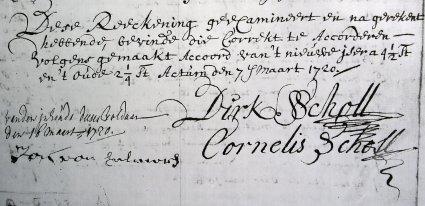 Dese Reeckening geexamineert en na gereekent
hebbende bevinde die Correkt te Accorderen
volgens gemaakt Accoord van't nieuwe jsera 4½ st
en 't oude 2¼ st Actum den 7 Maart 1720.
Dirk Scholl
den 14 maart 1720.
Cornelis Scholl
van